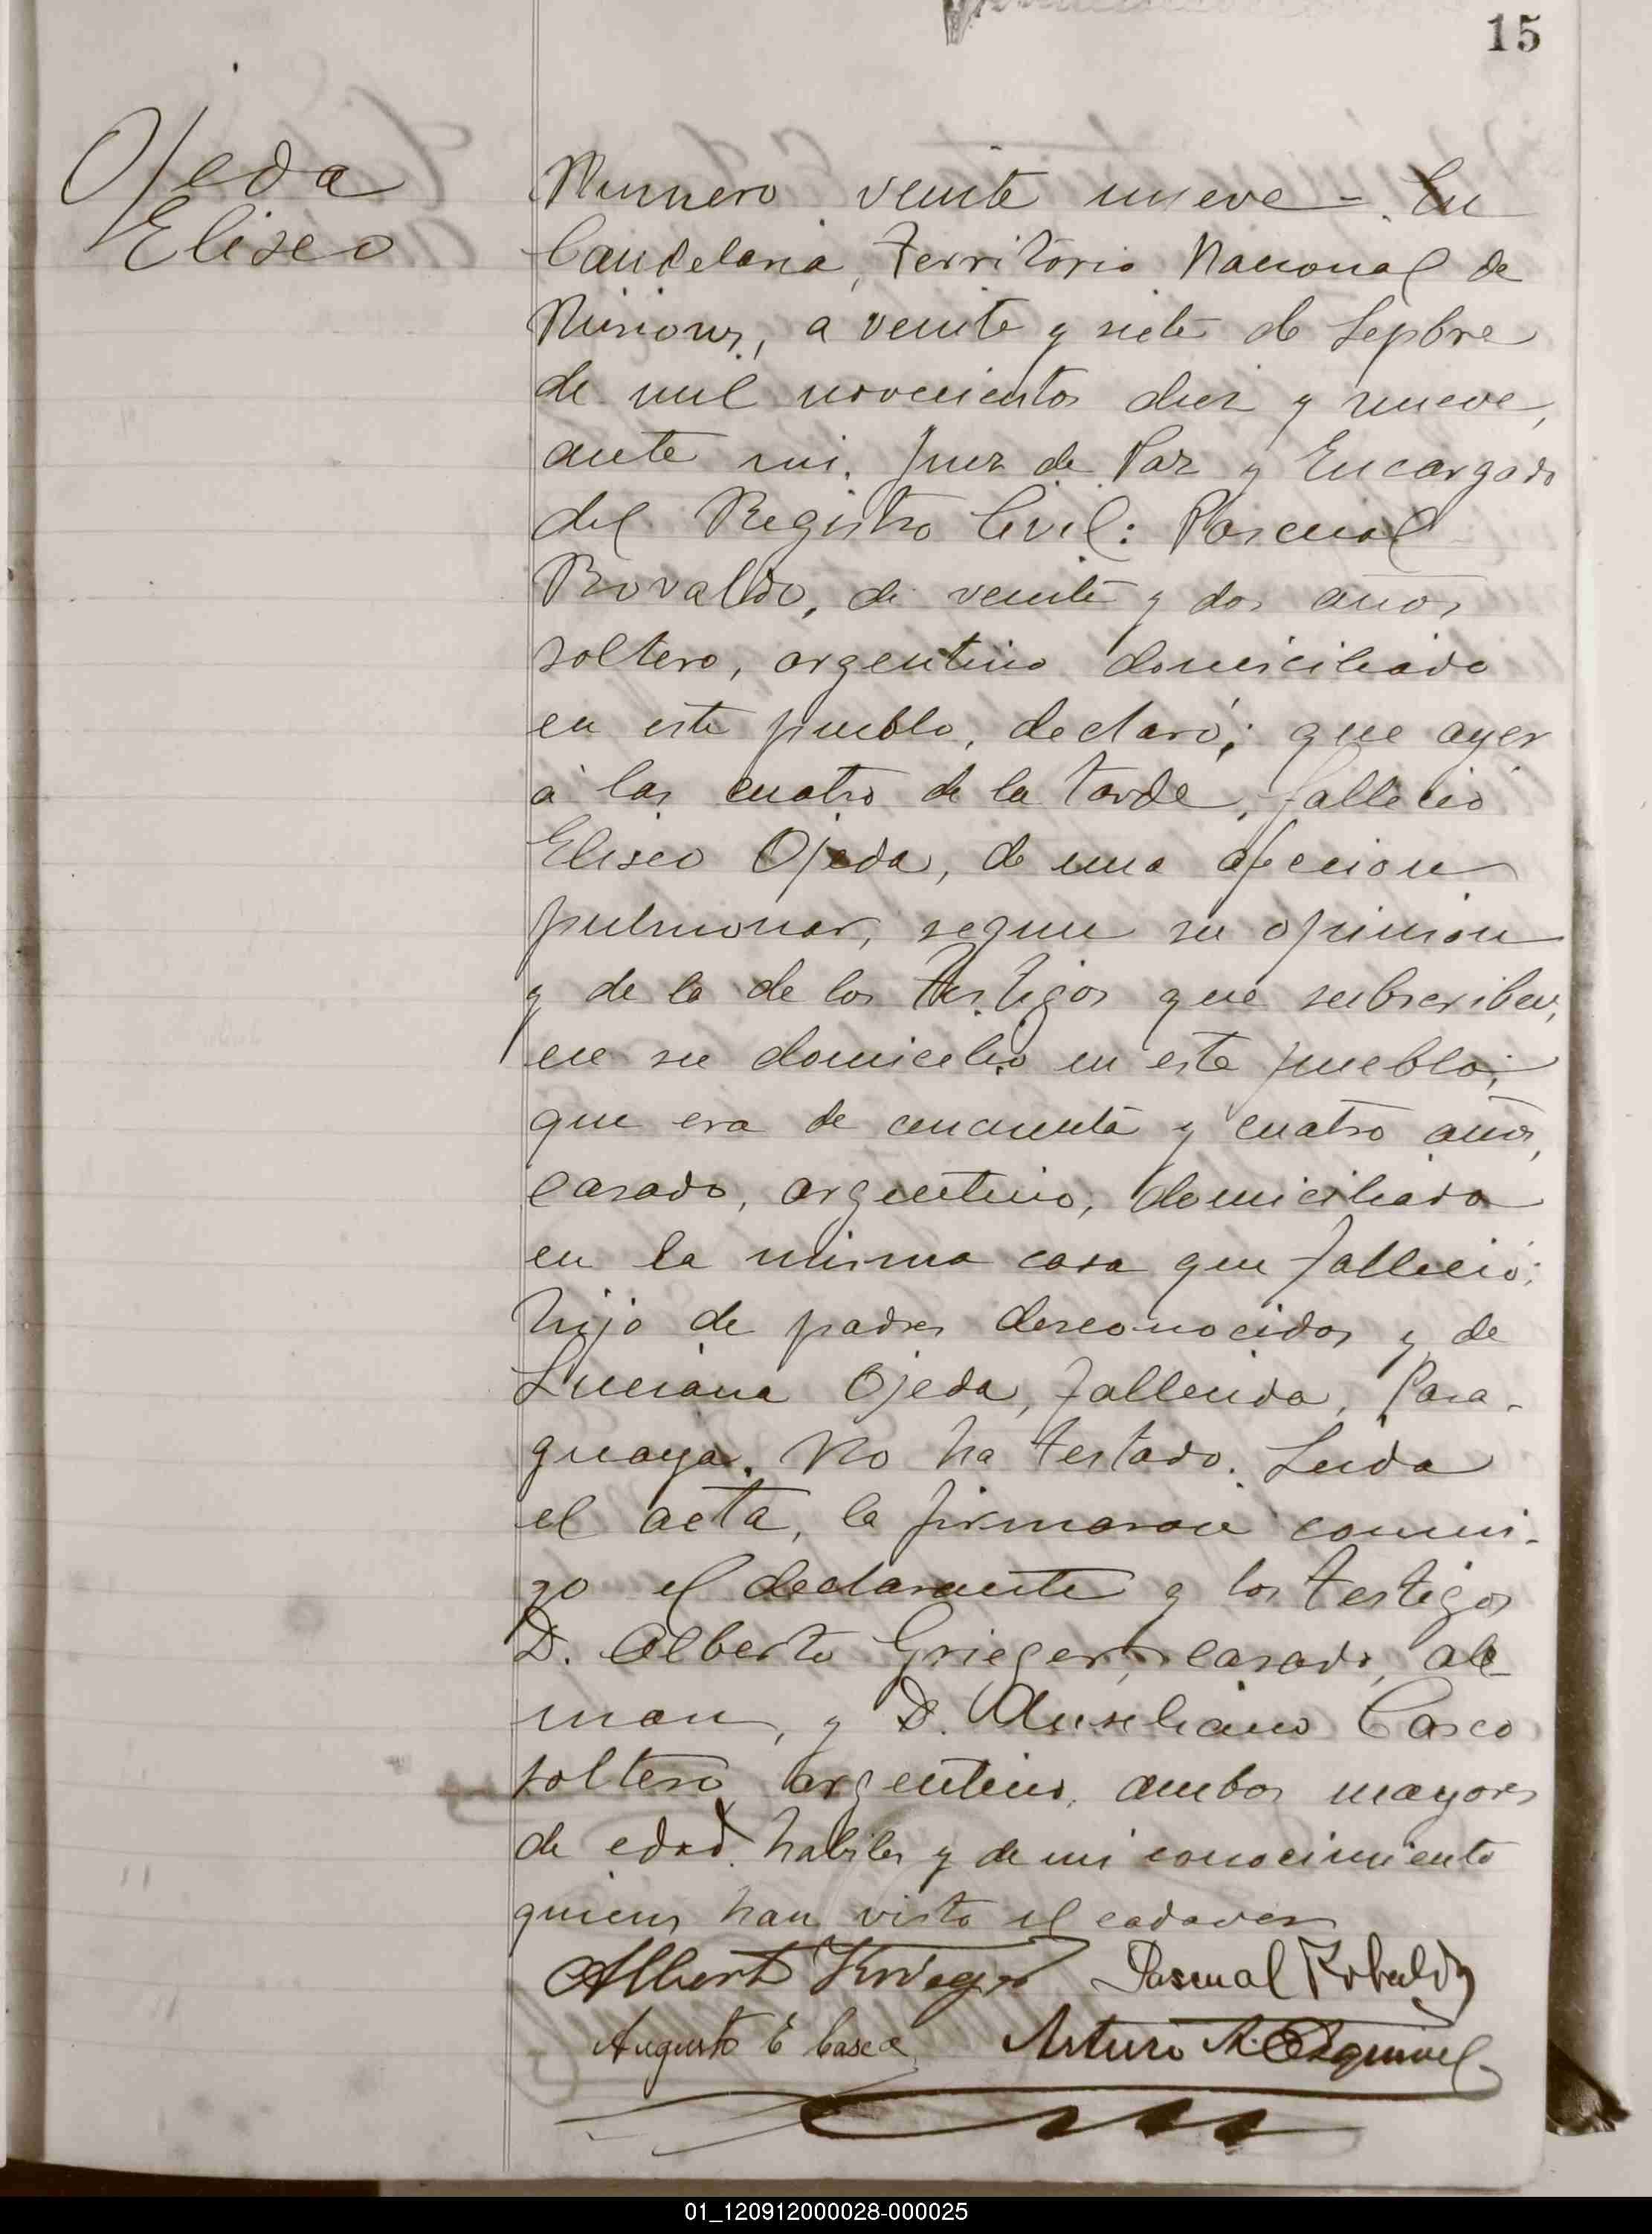 15
Ojeda
Eliseo
Numero veinte nueve - En
Candelaria, Territorio Nacional de
Misiones, a veinte y siete de Sepbre
de mil novecientos diez y nueve,
ante mi. Juez de Paz y Encargado
del Registro Civil: Pascual
Rovaldo, de veinte y dos años
soltero, argentino domiciliado
en este pueblo, declaró; que ayer
á las cuatro de la tarde, falleció
Eliseo Ojeda, de una afeccion
pulmonar, segun su opinion
y de la de los testigos que subscriben,
en su domicilio en este pueblo;
que era de cincuenta y cuatro años,
casado, argentino, domiciliado
en la misma casa que falleció;
hijo de padres desconocidos y de
Luciana Ojeda, fallecida, Para-
guaya. No ha testado. Leida
el acta, la firmaron conmi-
go el declarante y los testigos
D. Alberto Grieger, casado, ale
man, y D. Casco
soltero argentino, ambos mayores
de edad habiles y de mi conocimiento
quienes han visto el cadaver
Albert Krieger Pascual Robaldo
Augusto E Casco Arturo A. Esquivel
01_120912000028-000025